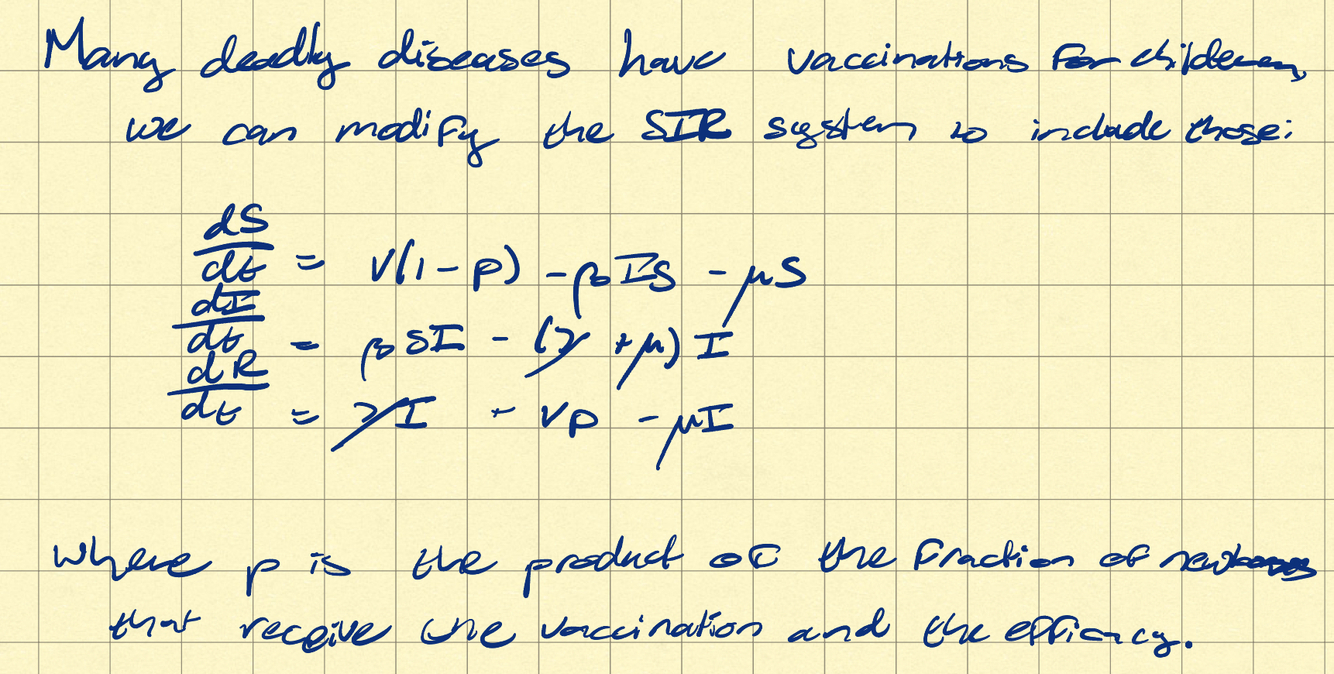 Many deadly diseases have vaccinations for children,
we can modify the SIR system to include these:
dS/dt = ν(1 - p) - βIS - μS
dI/dt = βSI - (γ + μ)I
dR/dt = γI + νp - μI
where p is the product of the fraction of newborns
that receive the vaccination and the efficacy.